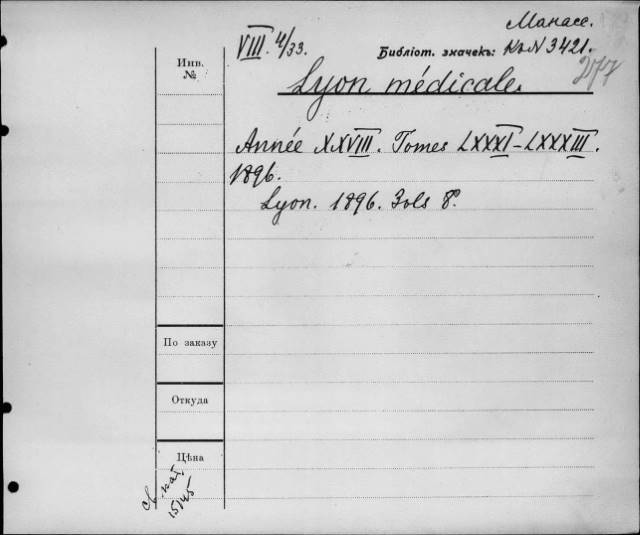 Манасе.
VIII. 4/33.
Библіот. значекъ: К.N 3421.
277
Инв.
№
Lyon médicale.
Année XXVIII. Tomes LXXXI-LXXXIII.
1896.
Lyon. 1896. 3 vols 8°.
По заказу
Откуда
Цѣна
св. кат.
15145